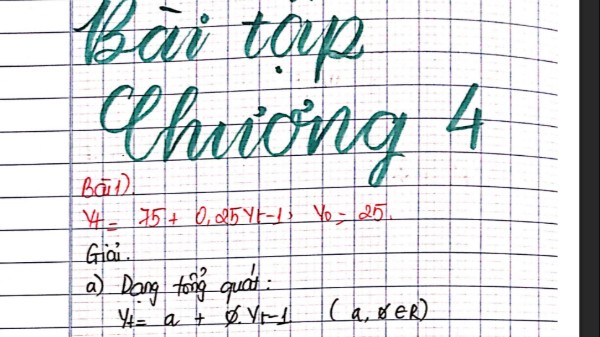 Bài tập
Chương 4
Bài 1)
Yt = 75 + 0,25Yt-1, Y0 = 25.
Giải.
a) Dạng tổng quát:
Yt = a + ϕ.Yt-1 (a, ϕ ∈ R)